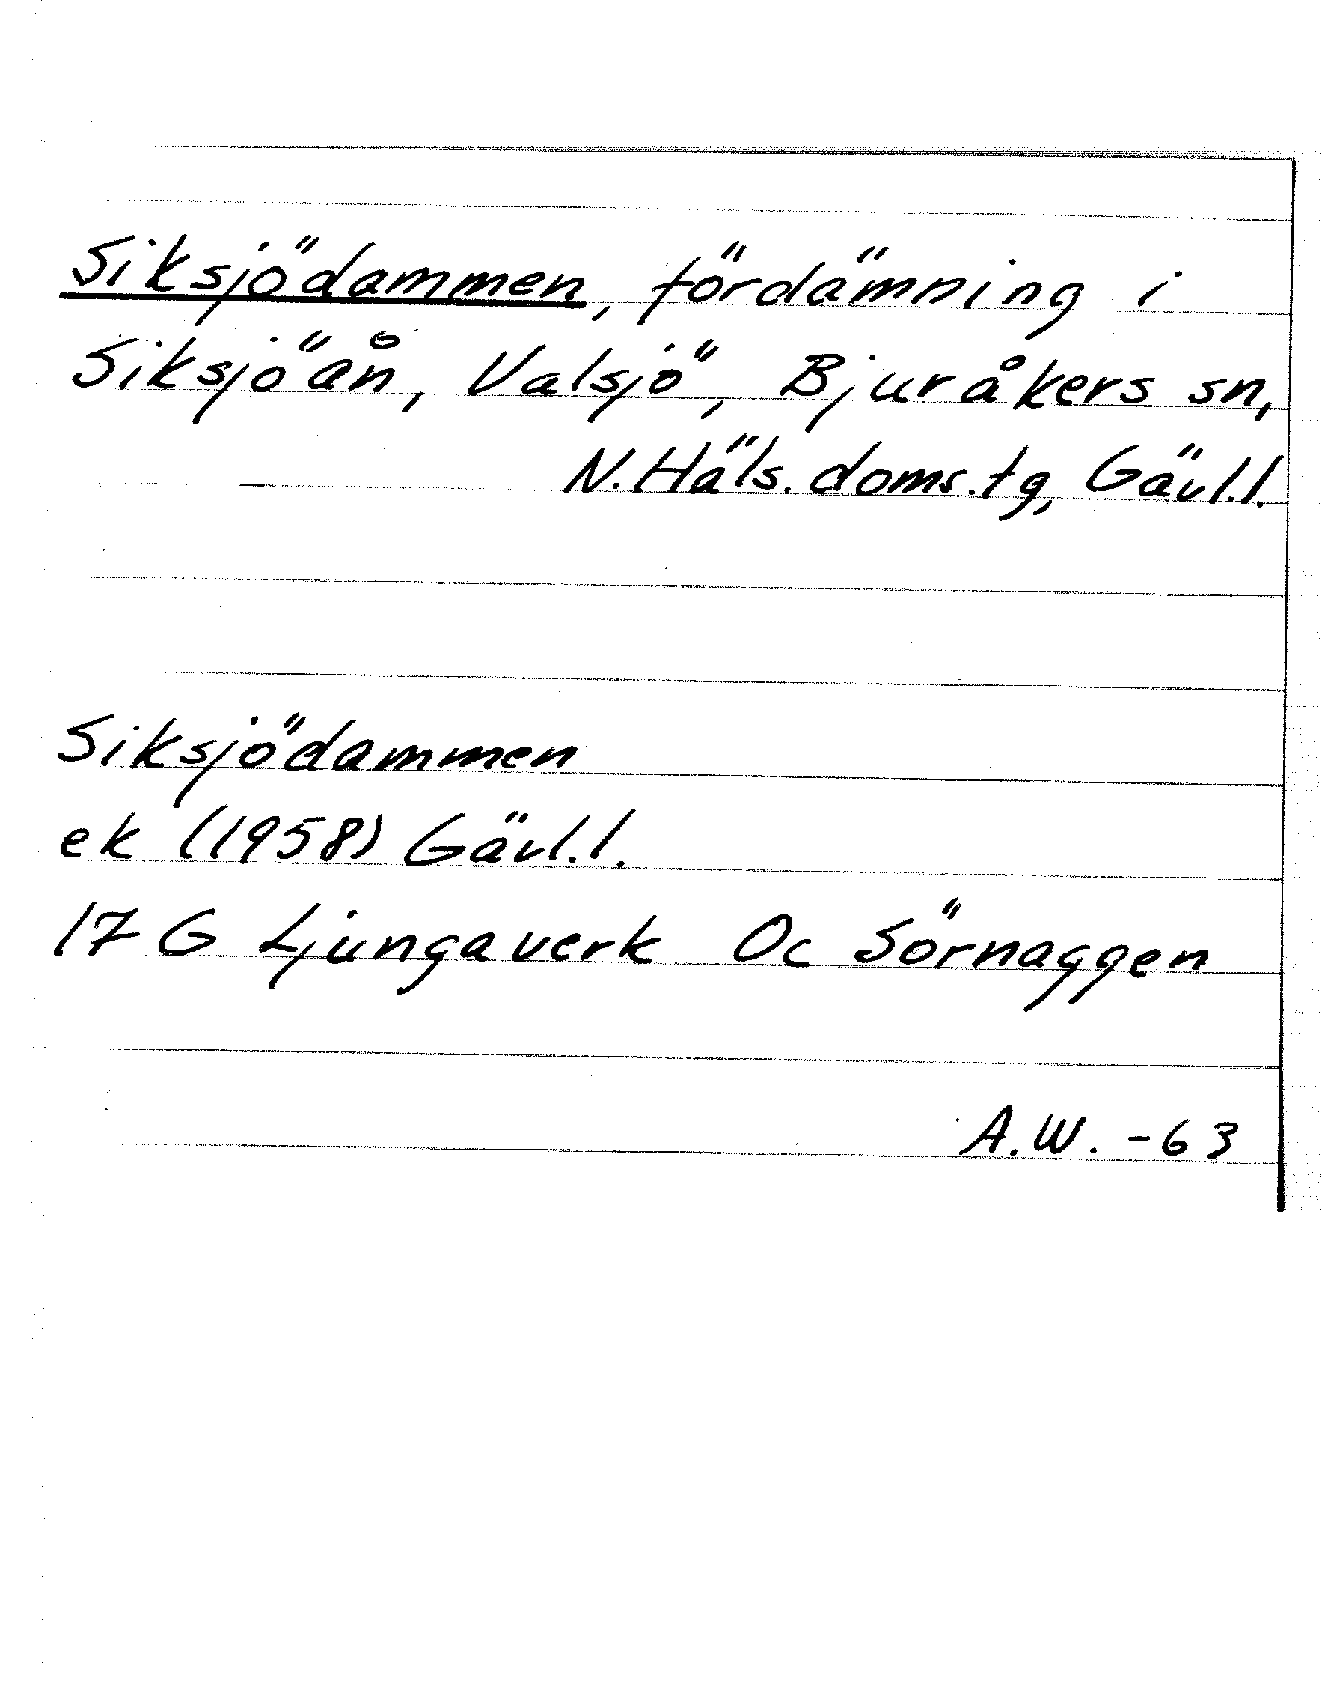 Siksjödammen, fördämning i
Siksjöån, Valsjö, Bjuråkers sn,
N. Häls. doms. tg, Gävl. l.
Siksjödammen
ek (1958) Gävl. l.
17 G Ljungaverk Oc Sörnaggen
A.W. -63